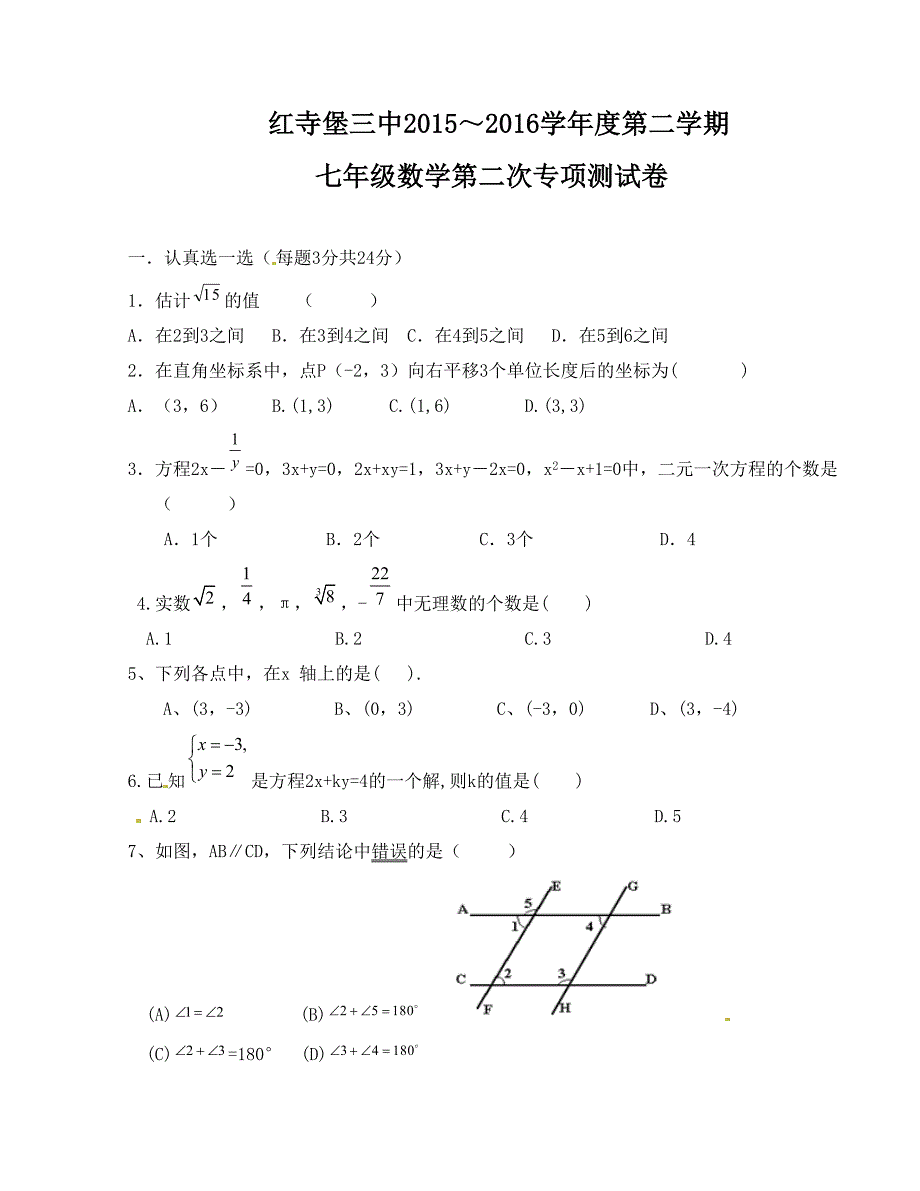 红寺堡三中2015～2016学年度第二学期
七年级数学第二次专项测试卷
一．认真选一选（每题3分共24分）
1．估计√15的值 （ ）
A．在2到3之间 B．在3到4之间 C．在4到5之间 D．在5到6之间
2．在直角坐标系中，点P（-2，3）向右平移3个单位长度后的坐标为( )
A．（3，6） B.(1,3) C.(1,6) D.(3,3)
3．方程2x－1/y=0，3x+y=0，2x+xy=1，3x+y－2x=0，x²－x+1=0中，二元一次方程的个数是
（ ）
A．1个 B．2个 C．3个 D．4
4.实数√2，1/4，π，∛8，-22/7中无理数的个数是( )
A.1 B.2 C.3 D.4
5、下列各点中，在x 轴上的是( ).
A、(3，-3) B、(0，3) C、(-3，0) D、(3，-4)
6.已知{x=-3, y=2 是方程2x+ky=4的一个解,则k的值是( )
A.2 B.3 C.4 D.5
7、如图，AB∥CD，下列结论中错误的是（ ）
E G
5
A B
1 4
C 2 3 D
F H
(A)∠1=∠2 (B)∠2+∠5=180°
(C)∠2+∠3=180° (D)∠3+∠4=180°